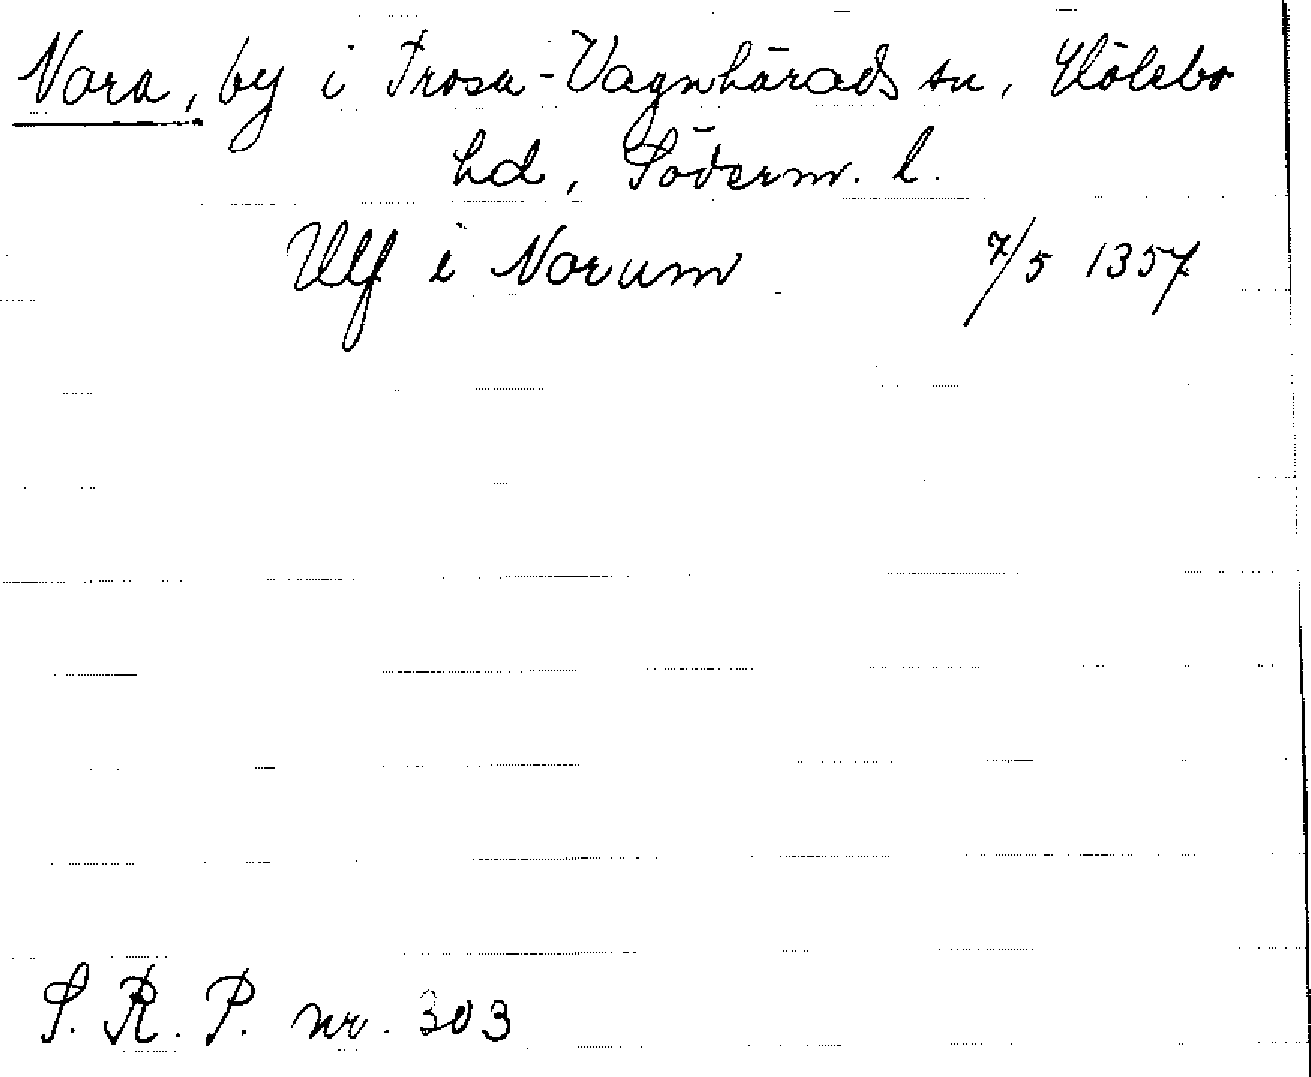 Nora, by i Trosa-Vagnhärads sn, Hölebo
hd, Söderm. l.
Ulf i Norum 7/5 1357
S. R. P. nr. 303